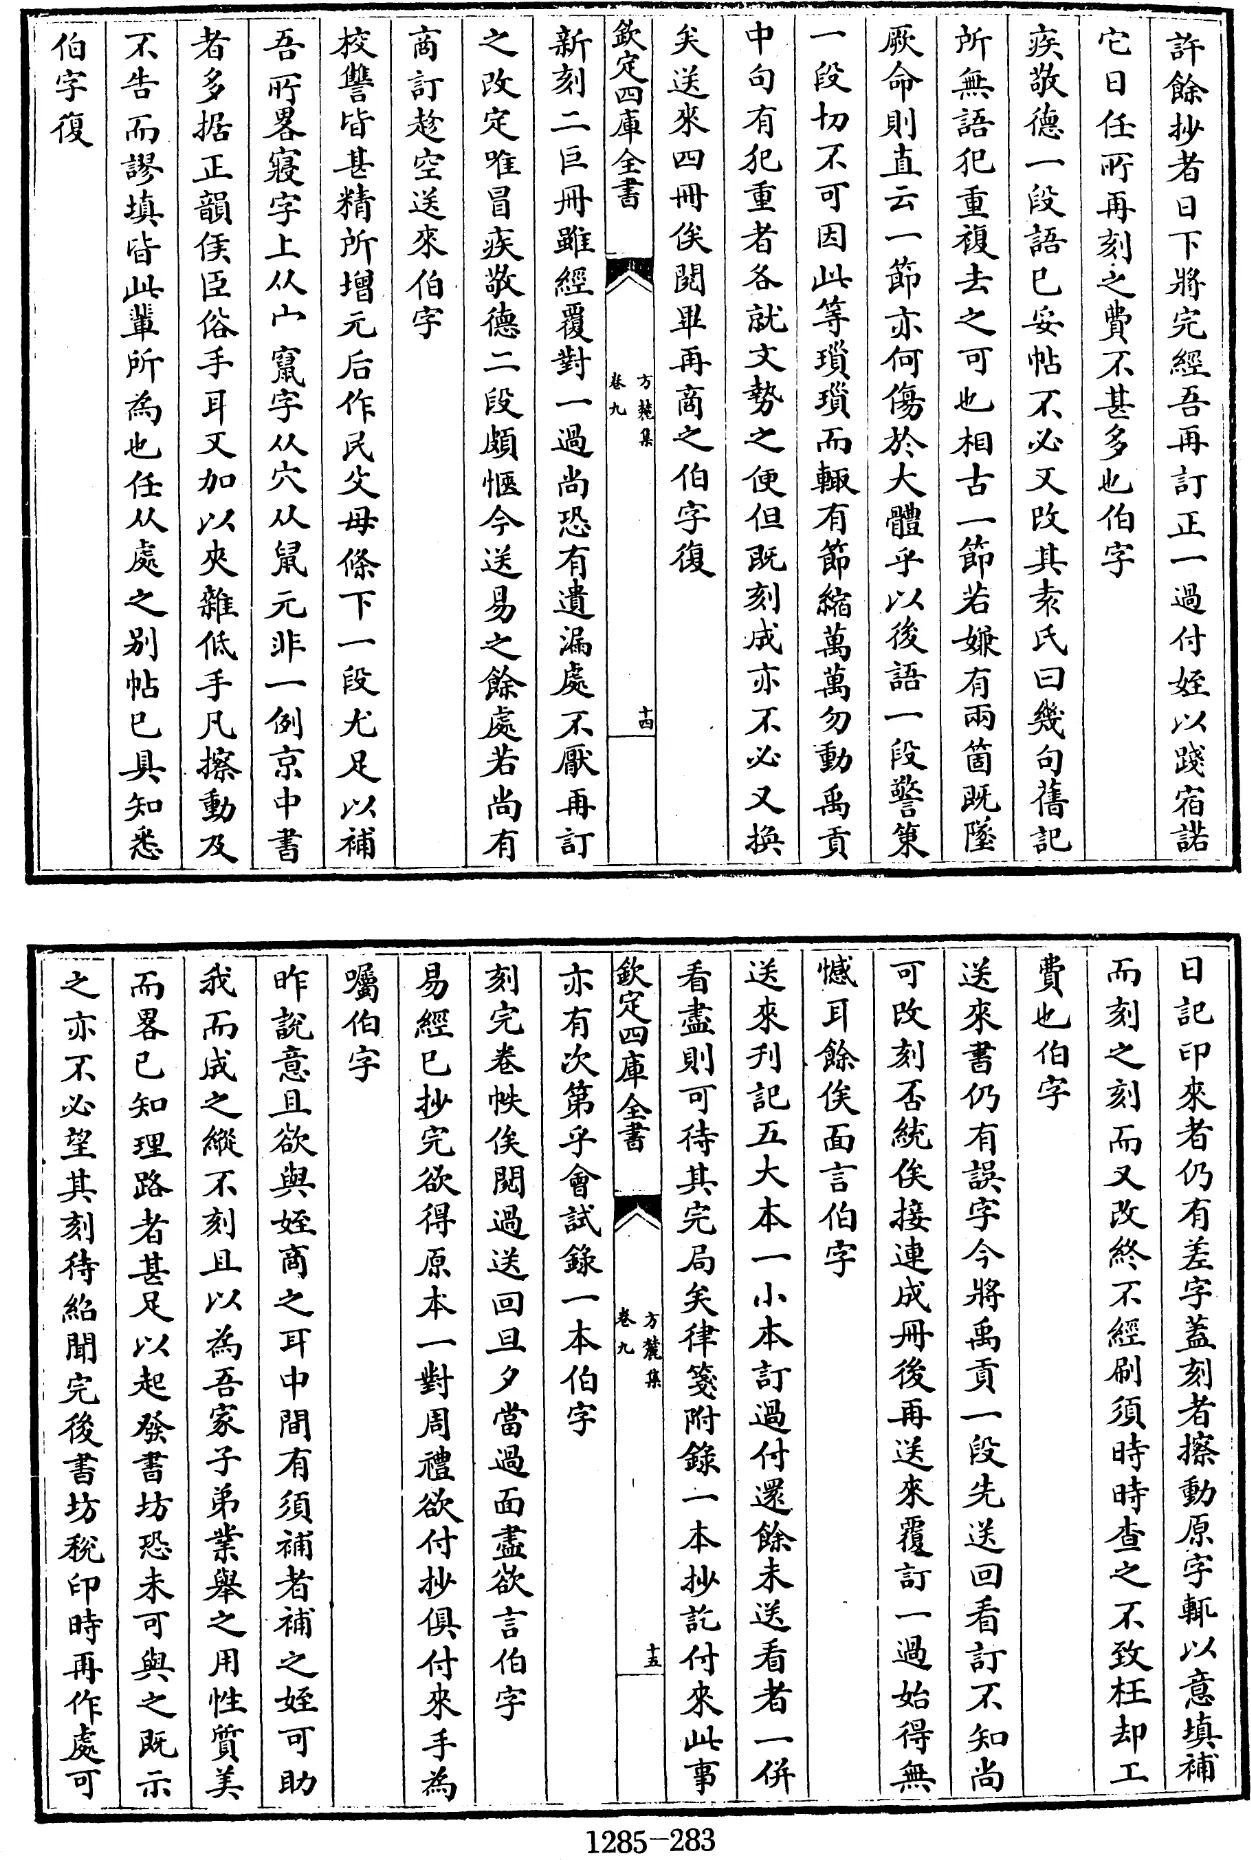 許餘抄者日下將完經吾再訂正一過付姪以踐宿諾
它日任所再刻之費不甚多也伯字
疾敬德一段語已妥帖不必又改其袁氏曰幾句舊記
所無語犯重複去之可也相古一節若嫌有兩箇既墜
厥命則直云一節亦何傷於大體乎以後語一段警策
一段切不可因此等瑣瑣而輒有節縮萬萬勿動禹貢
中句有犯重者各就文勢之便但既刻成亦不必又換
矣送來四冊俟閱畢再商之伯字復
欽定四庫全書
方麓集
卷九
十四
新刻二巨冊雖經覆對一過尚恐有遺漏處不厭再訂
之改定唯冒疾敬德二段頗愜今送易之餘處若尚有
商訂趁空送來伯字
校讐皆甚精所增元后作民父母條下一段尤足以補
吾所畧寢字上从宀竄字从穴从鼠元非一例京中書
者多据正韻俟臣俗手耳又加以夾雜低手凡擦動及
不告而謬填皆此輩所為也任从處之别帖已具知悉
伯字復
日記印來者仍有差字蓋刻者擦動原字輒以意填補
而刻之刻而又改終不經刷須時時查之不致枉却工
費也伯字
送來書仍有誤字今將禹貢一段先送回看訂不知尚
可改刻否統俟接連成冊後再送來覆訂一過始得無
憾耳餘俟面言伯字
送來刋記五大本一小本訂過付還餘未送看者一併
看盡則可待其完局矣律箋附錄一本抄訖付來此事
欽定四庫全書
方麓集
卷九
十五
亦有次第乎會試錄一本伯字
刻完卷帙俟閱過送回旦夕當過面盡欲言伯字
易經已抄完欲得原本一對周禮欲付抄俱付來手為
囑伯字
昨說意且欲與姪商之耳中間有須補者補之姪可助
我而成之縱不刻且以為吾家子弟業舉之用性質美
而畧已知理路者甚足以起發書坊恐未可與之既示
之亦不必望其刻待紹聞完後書坊稅印時再作處可
1285-283